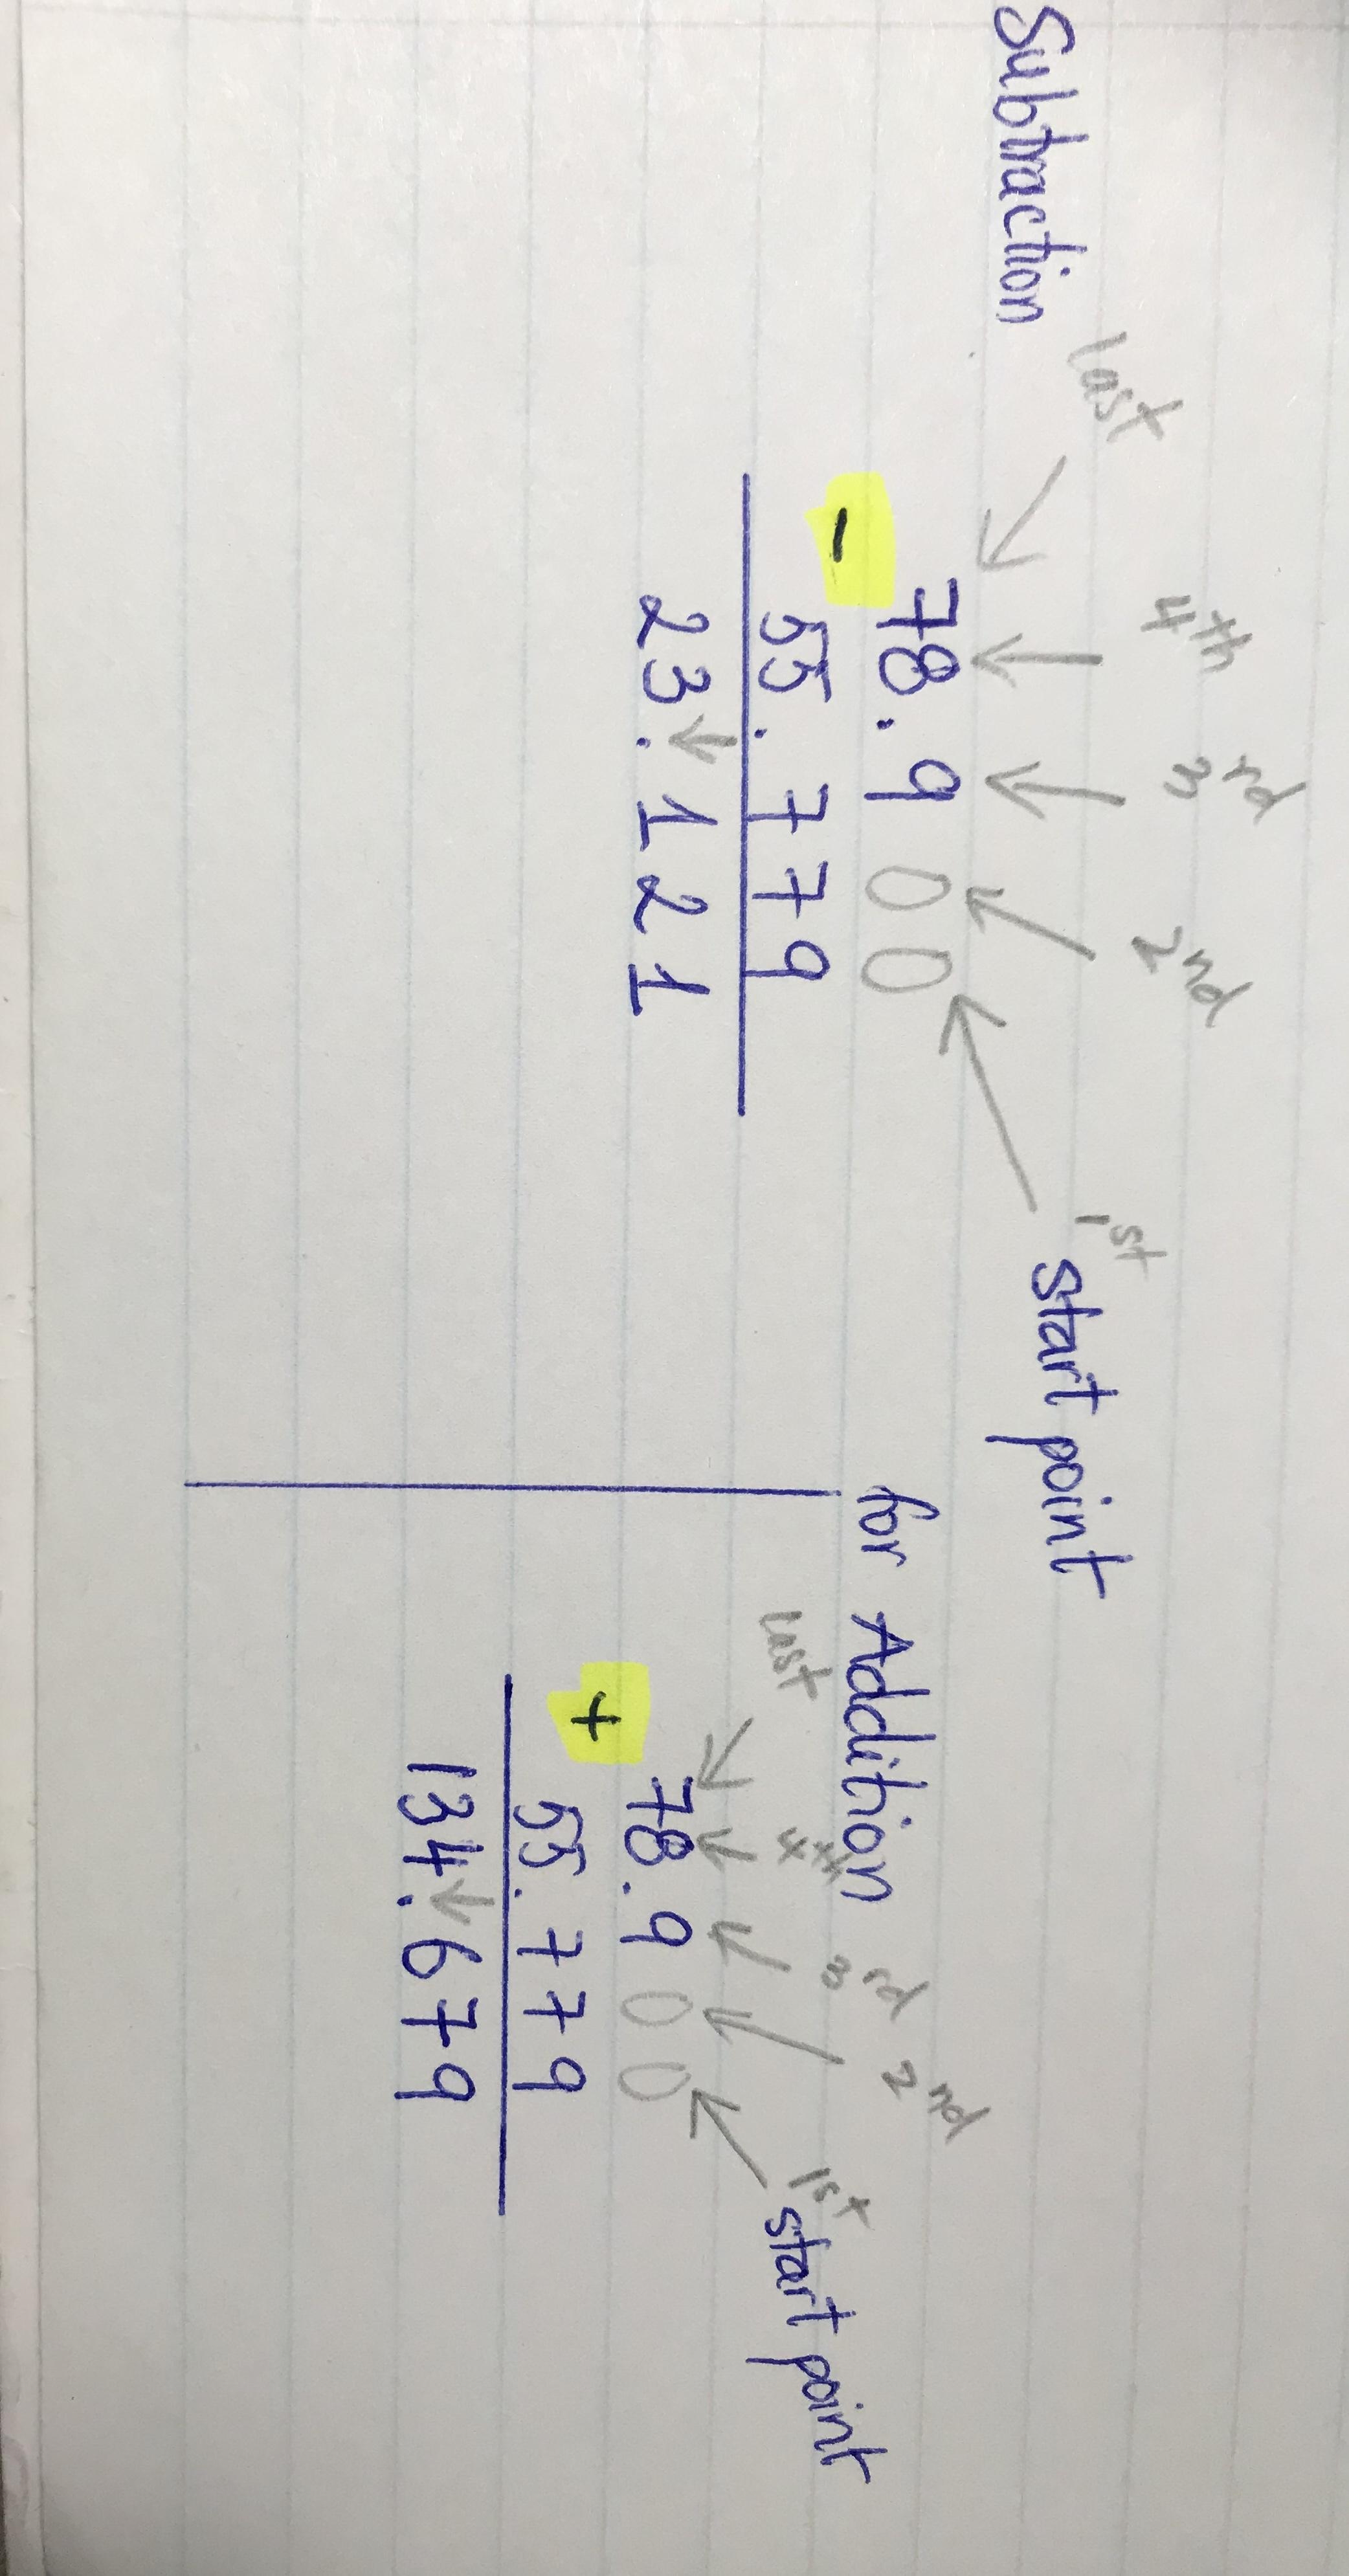 Subtraction
last 4th 3rd 2nd 1st start point
78.900
-
55.779
23.121
for Addition
last 4th 3rd 2nd 1st start point
78.900
+
55.779
134.679